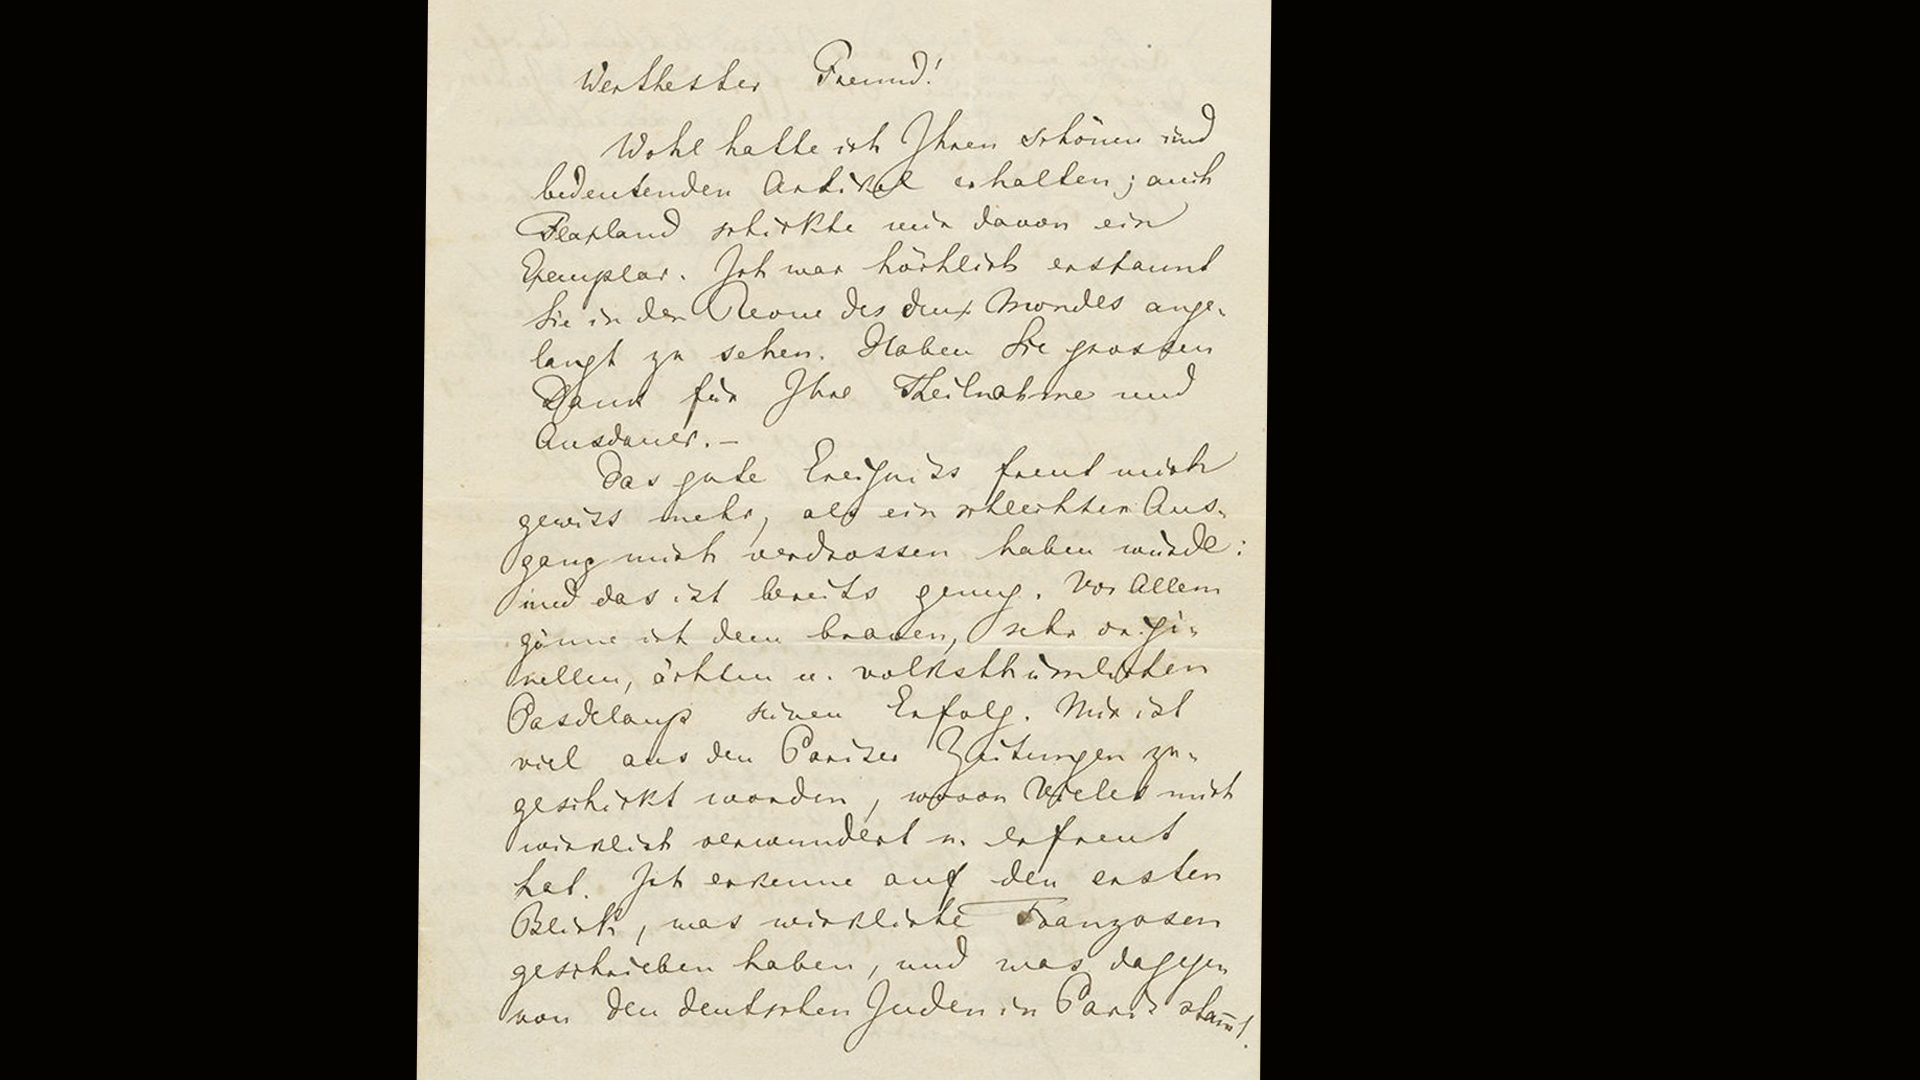 Werthester Freund!
Wohl hatte ich Ihren schönen und
bedeutenden Artikel erhalten; auch
Flaxland schickte mir davon ein
Exemplar. Ich war höchlich erstaunt
Sie in der Revue des deux Mondes ange-
langt zu sehen. Haben Sie grossen
Dank für Ihre Theilnahme und
Ausdauer. —
Das gute Ereigniss freut mich
gewiss mehr, als ein schlechter Aus-
gang mich verdrossen haben würde:
und das ist bereits genug. Vor Allem
gönne ich dem braven, sehr origi-
nellen, ächten u. volksthümlichen
Pasdeloup seinen Erfolg. Mir ist
viel aus den Pariser Zeitungen zu-
geschickt worden, wovon Vieles mich
wirklich verwundert u. erfreut
hat. Ich erkenne auf den ersten
Blick, was wirkliche Franzosen
geschrieben haben, und was dagegen
von den deutschen Juden in Paris stam̅t.